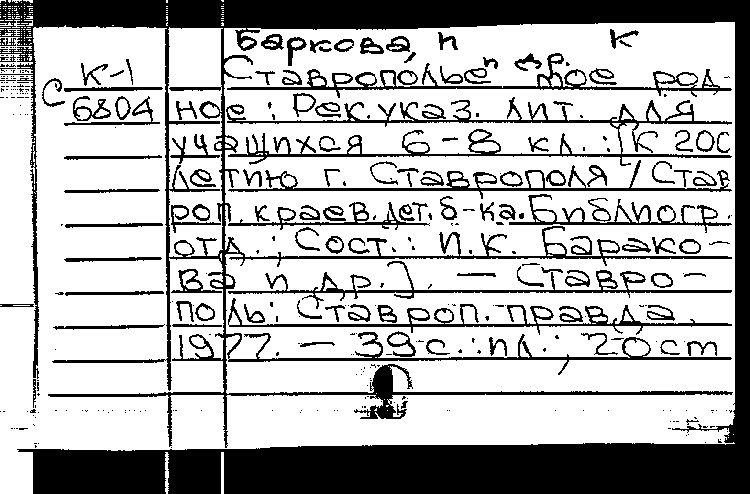 Баркова, и К
К-1 Ставрополье и др. мое род-
С 6804 ное: Рек. указ. лит. для
учащихся 6-8 кл.: [К 200
летию г. Ставрополя / Став
роп. краев. дет. б-ка. Библиогр.
отд.; Сост.: И.К. Барако-
ва и др.]. — Ставро-
поль: Ставроп. правда.
1977. — 39 с.: ил.; 20 cm